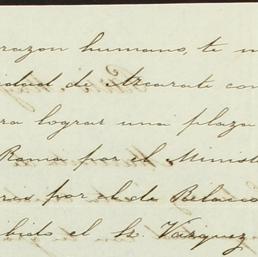 razon humano, te m
idad de Azcarate con
ra lograr una plaza
Roma por el Minist
rio por el de Relacio
ibido el Sr Vazquez